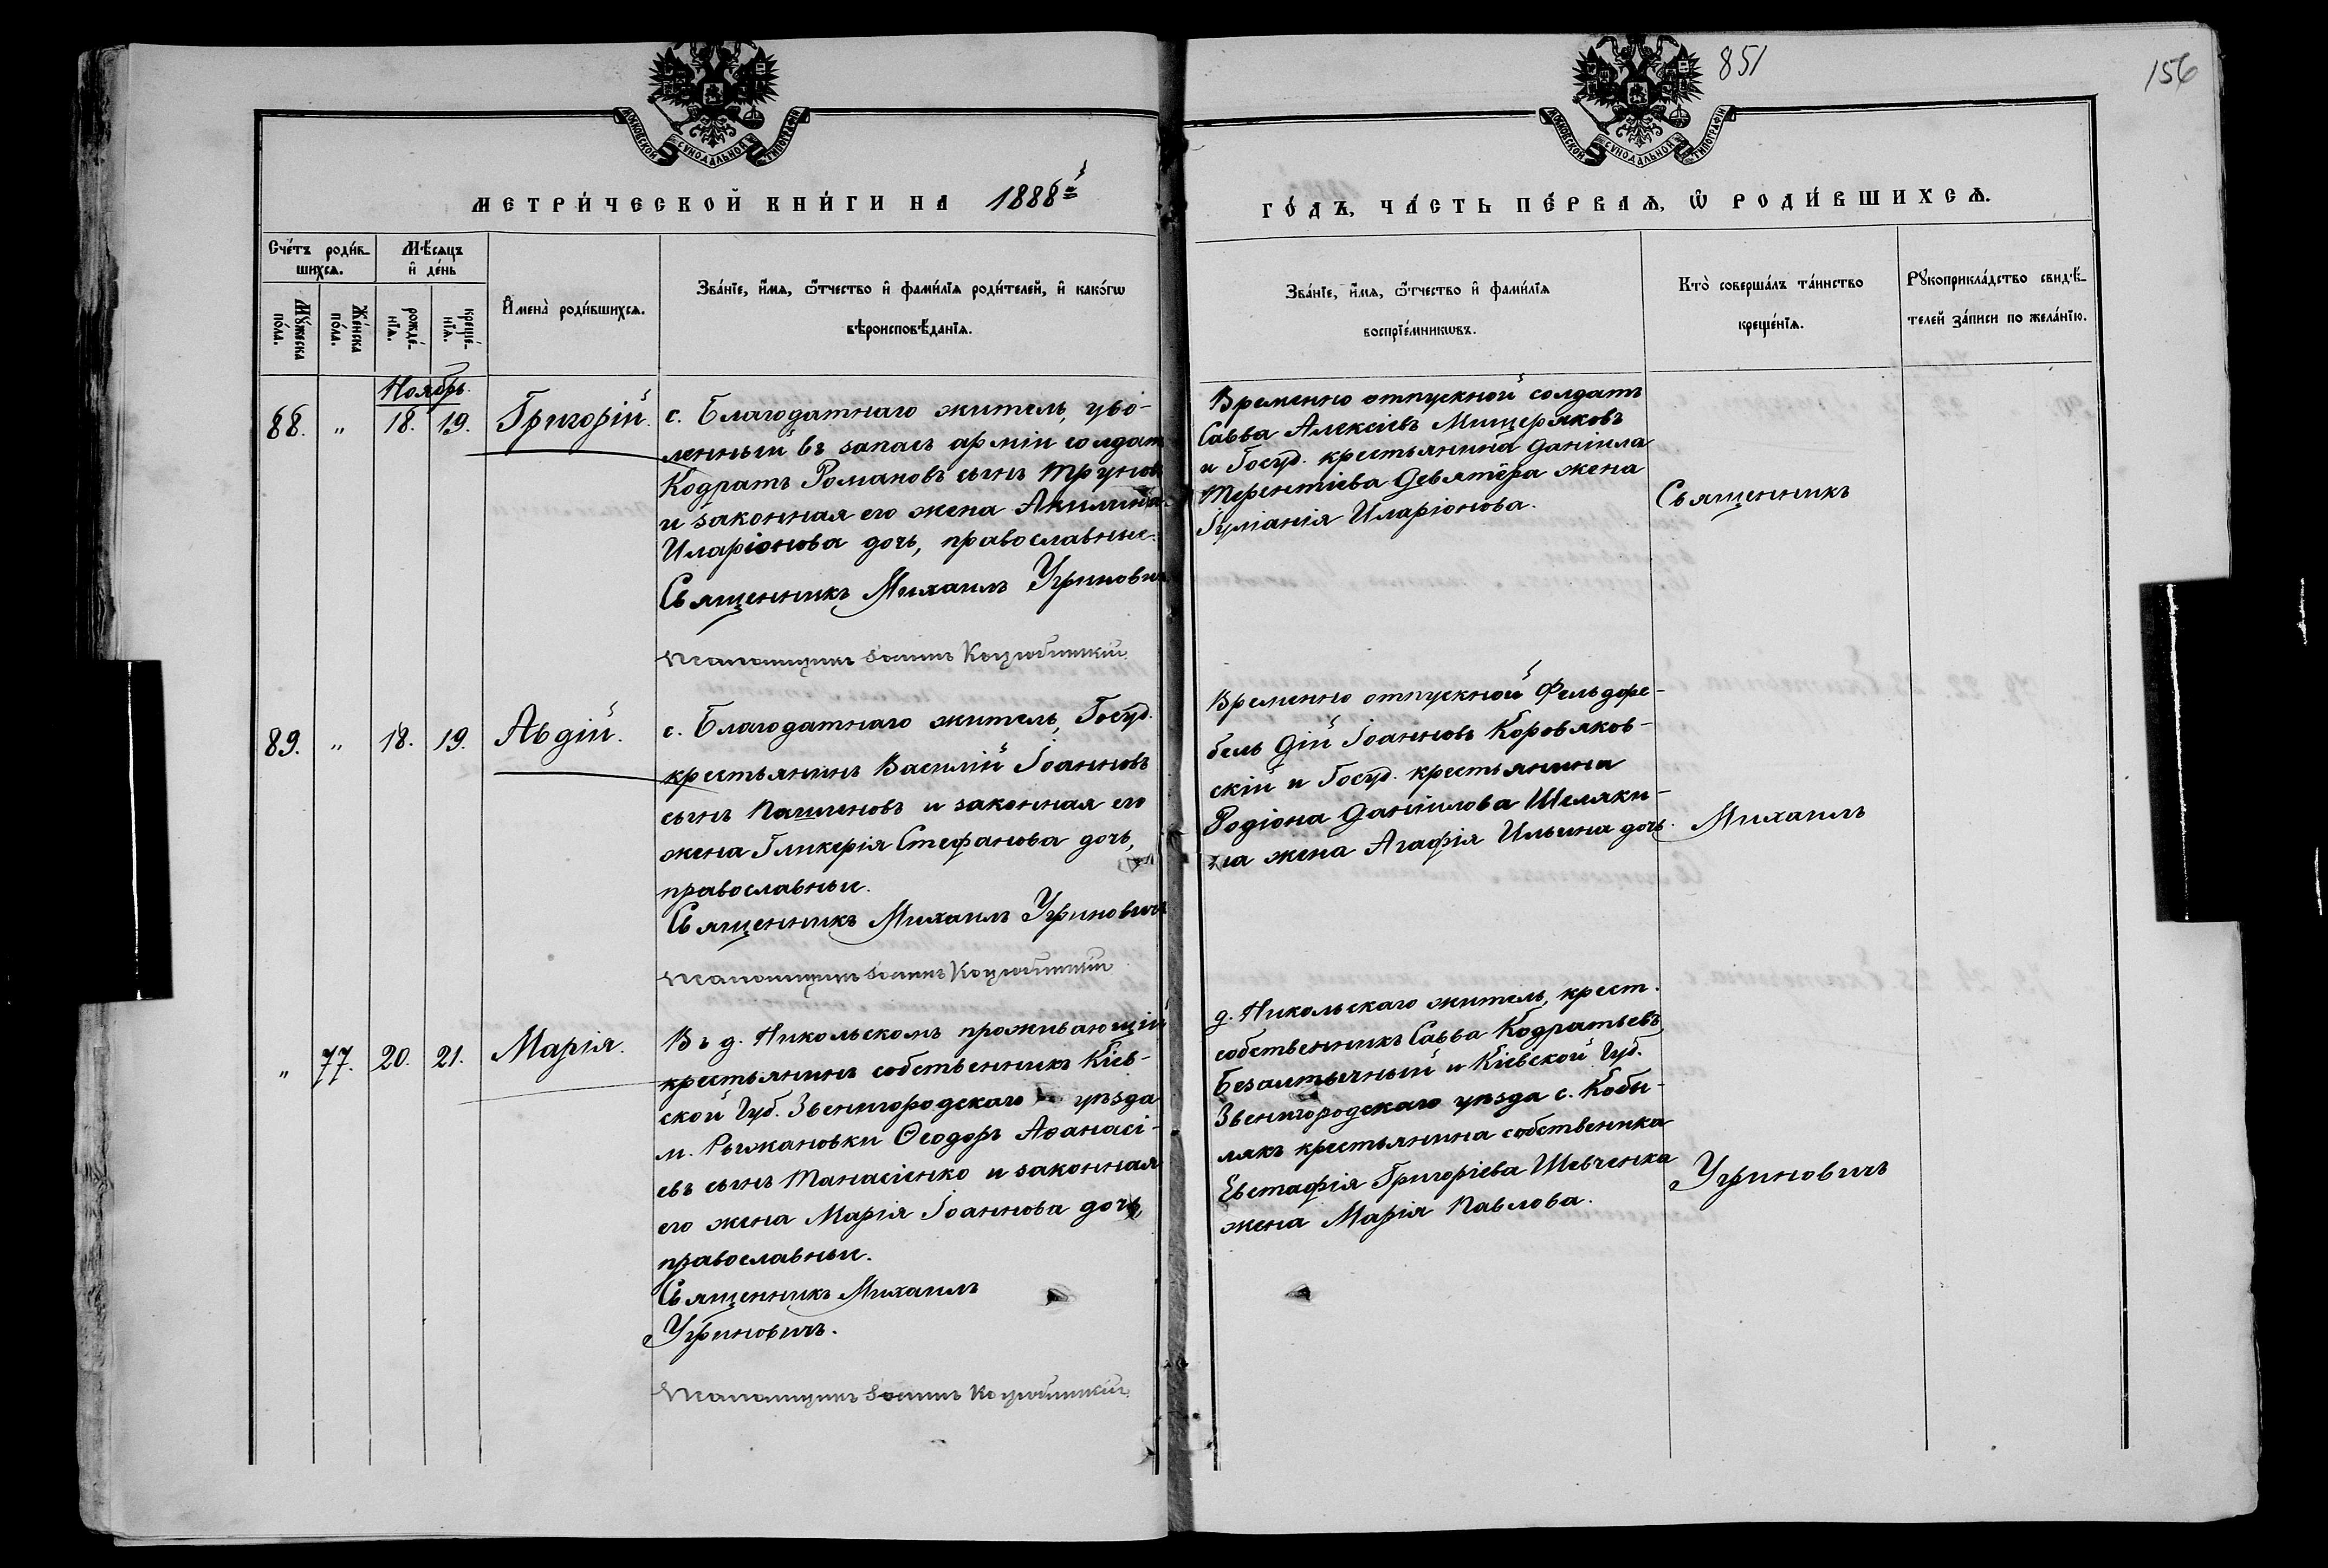 851
156
МОСКОВСКОЙ СѴНОДАЛЬНОЙ ТИПОГРАФІИ
МОСКОВСКОЙ СѴНОДАЛЬНОЙ ТИПОГРАФІИ
МЕТРИ́ЧЕСКОЙ КНИ́ГИ НА 1888й
ГО́ДЪ, ЧА́СТЬ ПЕ́РВАѦ, Ѡ РОДИ́ВШИХСѦ.
Сче́тъ роди́в-
шихсѧ.
Мѣ́сѧцъ
и҆ де́нь
Мꙋ́жеска
по́ла.
Же́нска
по́ла.
рожде́-
нїѧ.
креще́-
нїѧ.
И҆мена̀ роди́вшихсѧ.
Зва́нїе, и҆́мѧ, ѻ҆́тчество и҆ фами́лїѧ роди́телей, и҆ како́гѡ
вѣроисповѣ́данїѧ.
Зва́нїе, и҆́мѧ, ѻ҆́тчество и҆ фами́лїѧ
воспрїе́мникѡвъ.
Кто̀ соверша́лъ та́инство
креще́нїѧ.
Рꙋкоприкла́дство свидѣ́-
телей за́писи по жела́нїю.
Ноябрь.
88. " 18. 19. Григорій.
с. Благодатнаго житель, уво-
ленный въ запасъ арміи солдат
Кодратъ Романовъ сынъ Труновъ
и законная его жена Акилина
Иларіонова дочь, православные.
Священникъ Михаилъ Угринович
Псаломщикъ Іоаннъ Коцюбинскій.
Временно отпускной солдатъ
Савва Алексіевъ Мищеряковъ
и Госуд. крестьянина Даніила
Терентіева Девятёра жена
Іуліанія Иларіонова.
Священникъ
89. " 18. 19. Авдій.
с. Благодатнаго житель, Госуд.
крестьянинъ Василій Іоанновъ
сынъ Пашиновъ и законная его
жена Гликерія Стефанова дочь,
православные.
Священникъ Михаилъ Угриновичъ
Псаломщикъ Іоаннъ Коцюбинскій
Временно отпускной Фельдфе-
бель Дій Іоанновъ Коровяков-
скій и Госуд. крестьянина
Родіона Даніилова Шеляки-
на жена Агафія Ильина дочь.
Михаилъ
" 77. 20. 21. Марія.
Въ д. Никольскомъ проживающій
крестьянинъ собственникъ Кіев-
ской Губ. Звенигородскаго уѣзда
м. Рыжановки Ѳеодоръ Аѳанасі-
евъ сынъ Танасіенко и законная
его жена Марія Іоаннова дочь,
православные.
Священникъ Михаилъ
Угриновичъ.
Псаломщикъ Іоаннъ Коцюбинскій.
д. Никольскаго житель, крест.
собственникъ Савва Кодратьевъ
Безалтычный и Кіевской Губ.
Звенигородскаго уѣзда с. Кобы-
лякъ крестьянина собственика
Евстафія Григоріева Шевченка
жена Марія Павлова.
Угриновичъ